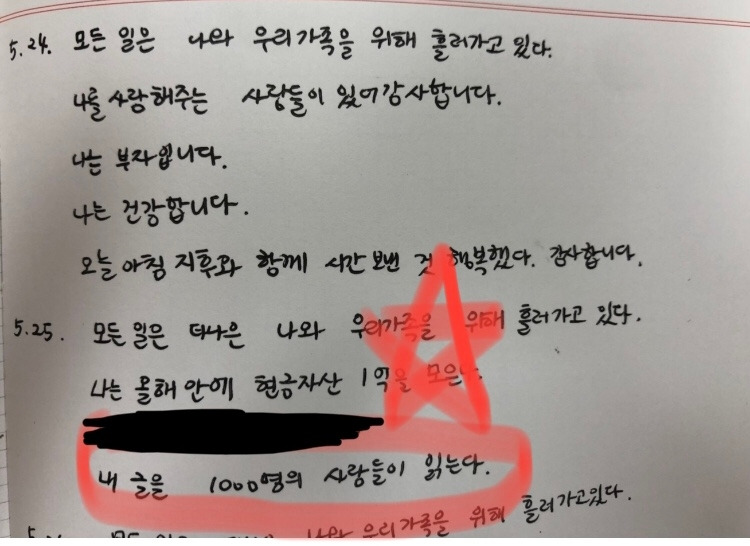 5.24. 모든 일은 나와 우리가족을 위해 흘러가고 있다.
나를 사랑해주는 사람들이 있어감사합니다.
나는 부자입니다.
나는 건강합니다.
오늘 아침 지후와 함께 시간 보낸 것 행복했다. 감사합니다.
5.25. 모든 일은 더나은 나와 우리가족을 위해 흘러가고 있다.
나는 올해 안에 현금자산 1억을 모은
내 글을 1000명의 사람들이 읽는다.
모든 나와 우리가족을 위해 흘러가고있다.